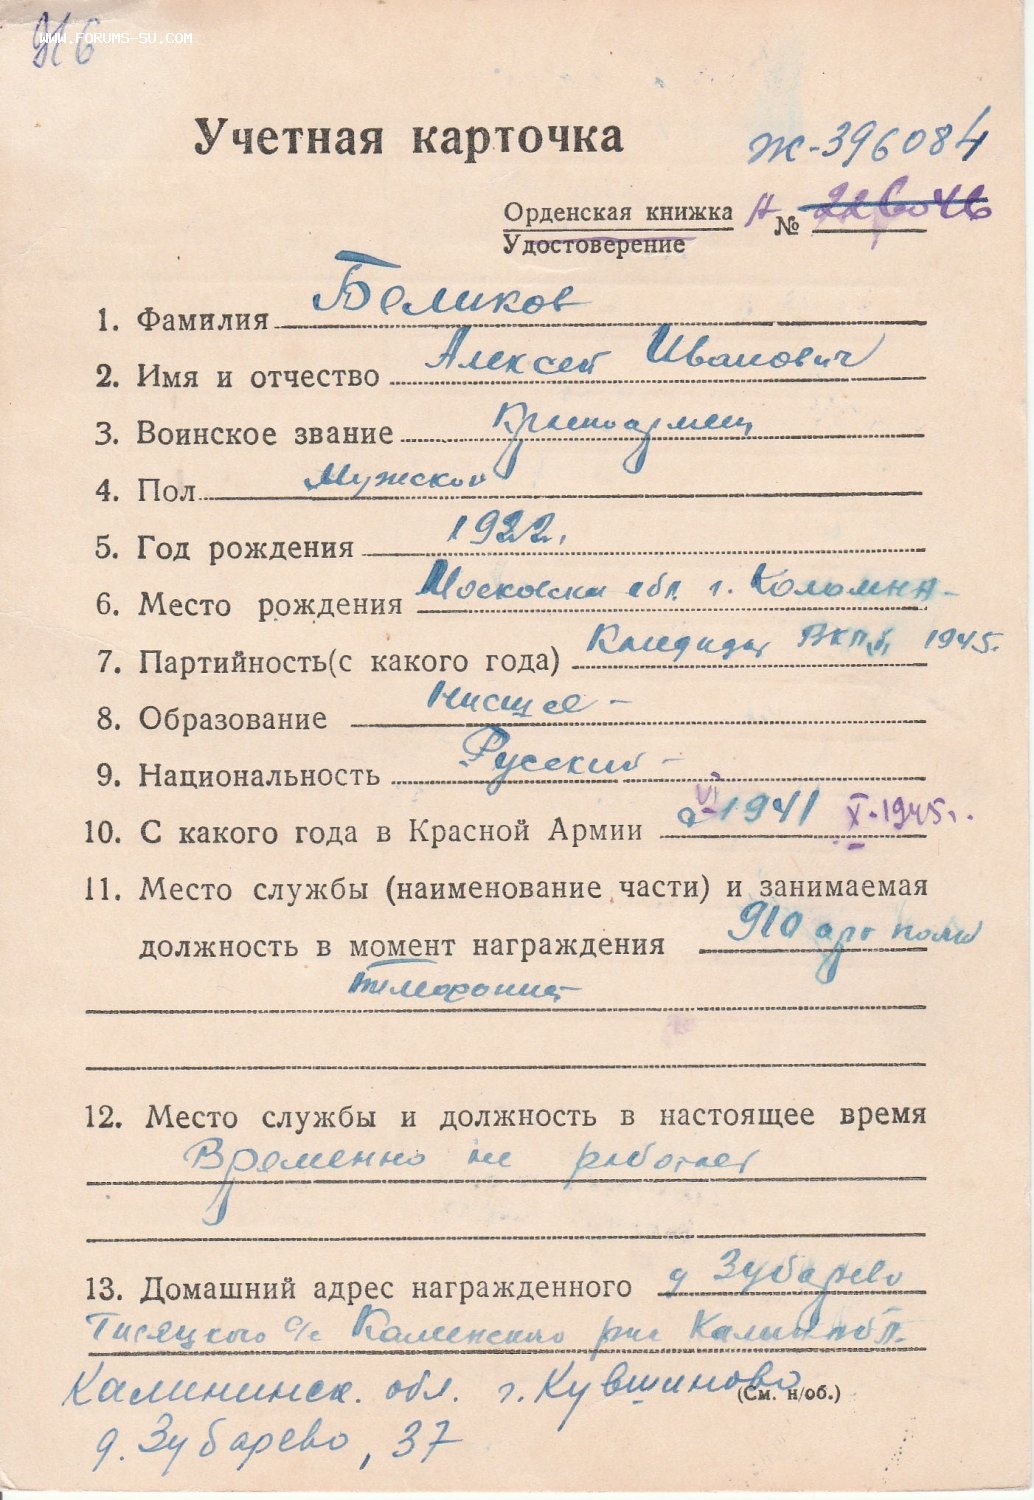 916
WWW.FORUMS-SU.COM
Учетная карточка
Ж-396084
Орденская книжка А № 226046
Удостоверение
1. Фамилия Беликов
2. Имя и отчество Алексей Иванович
3. Воинское звание Красноармеец
4. Пол Мужской
5. Год рождения 1922.
6. Место рождения Московская обл. г. Коломна-
7. Партийность (с какого года) Кандидат ВКПб, 1945.
8. Образование Низшее -
9. Национальность Русский -
10. С какого года в Красной Армии с VI 1941 X-1945г.
11. Место службы (наименование части) и занимаемая
должность в момент награждения 910 арт полк
телефонист
12. Место службы и должность в настоящее время
Временно не работает
13. Домашний адрес награжденного д Зубарево
Тысяцкого с/с Каменского р-на Калин обл.
Калининск. обл. г. Кувшиново
(См. н/об.)
д. Зубарево, 37